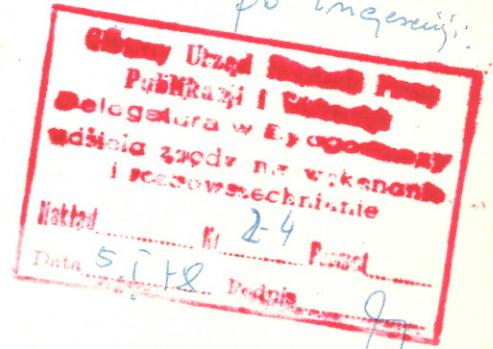 po ingerencji.
Główny Urząd Kontroli Prasy
Publikacji i Widowisk
Delegatura w Bydgoszczy
udziela zgody na wykonanie
i rozpowszechnianie
Nakład Nr Z-4 Format
Data 5.I.78 Podpis